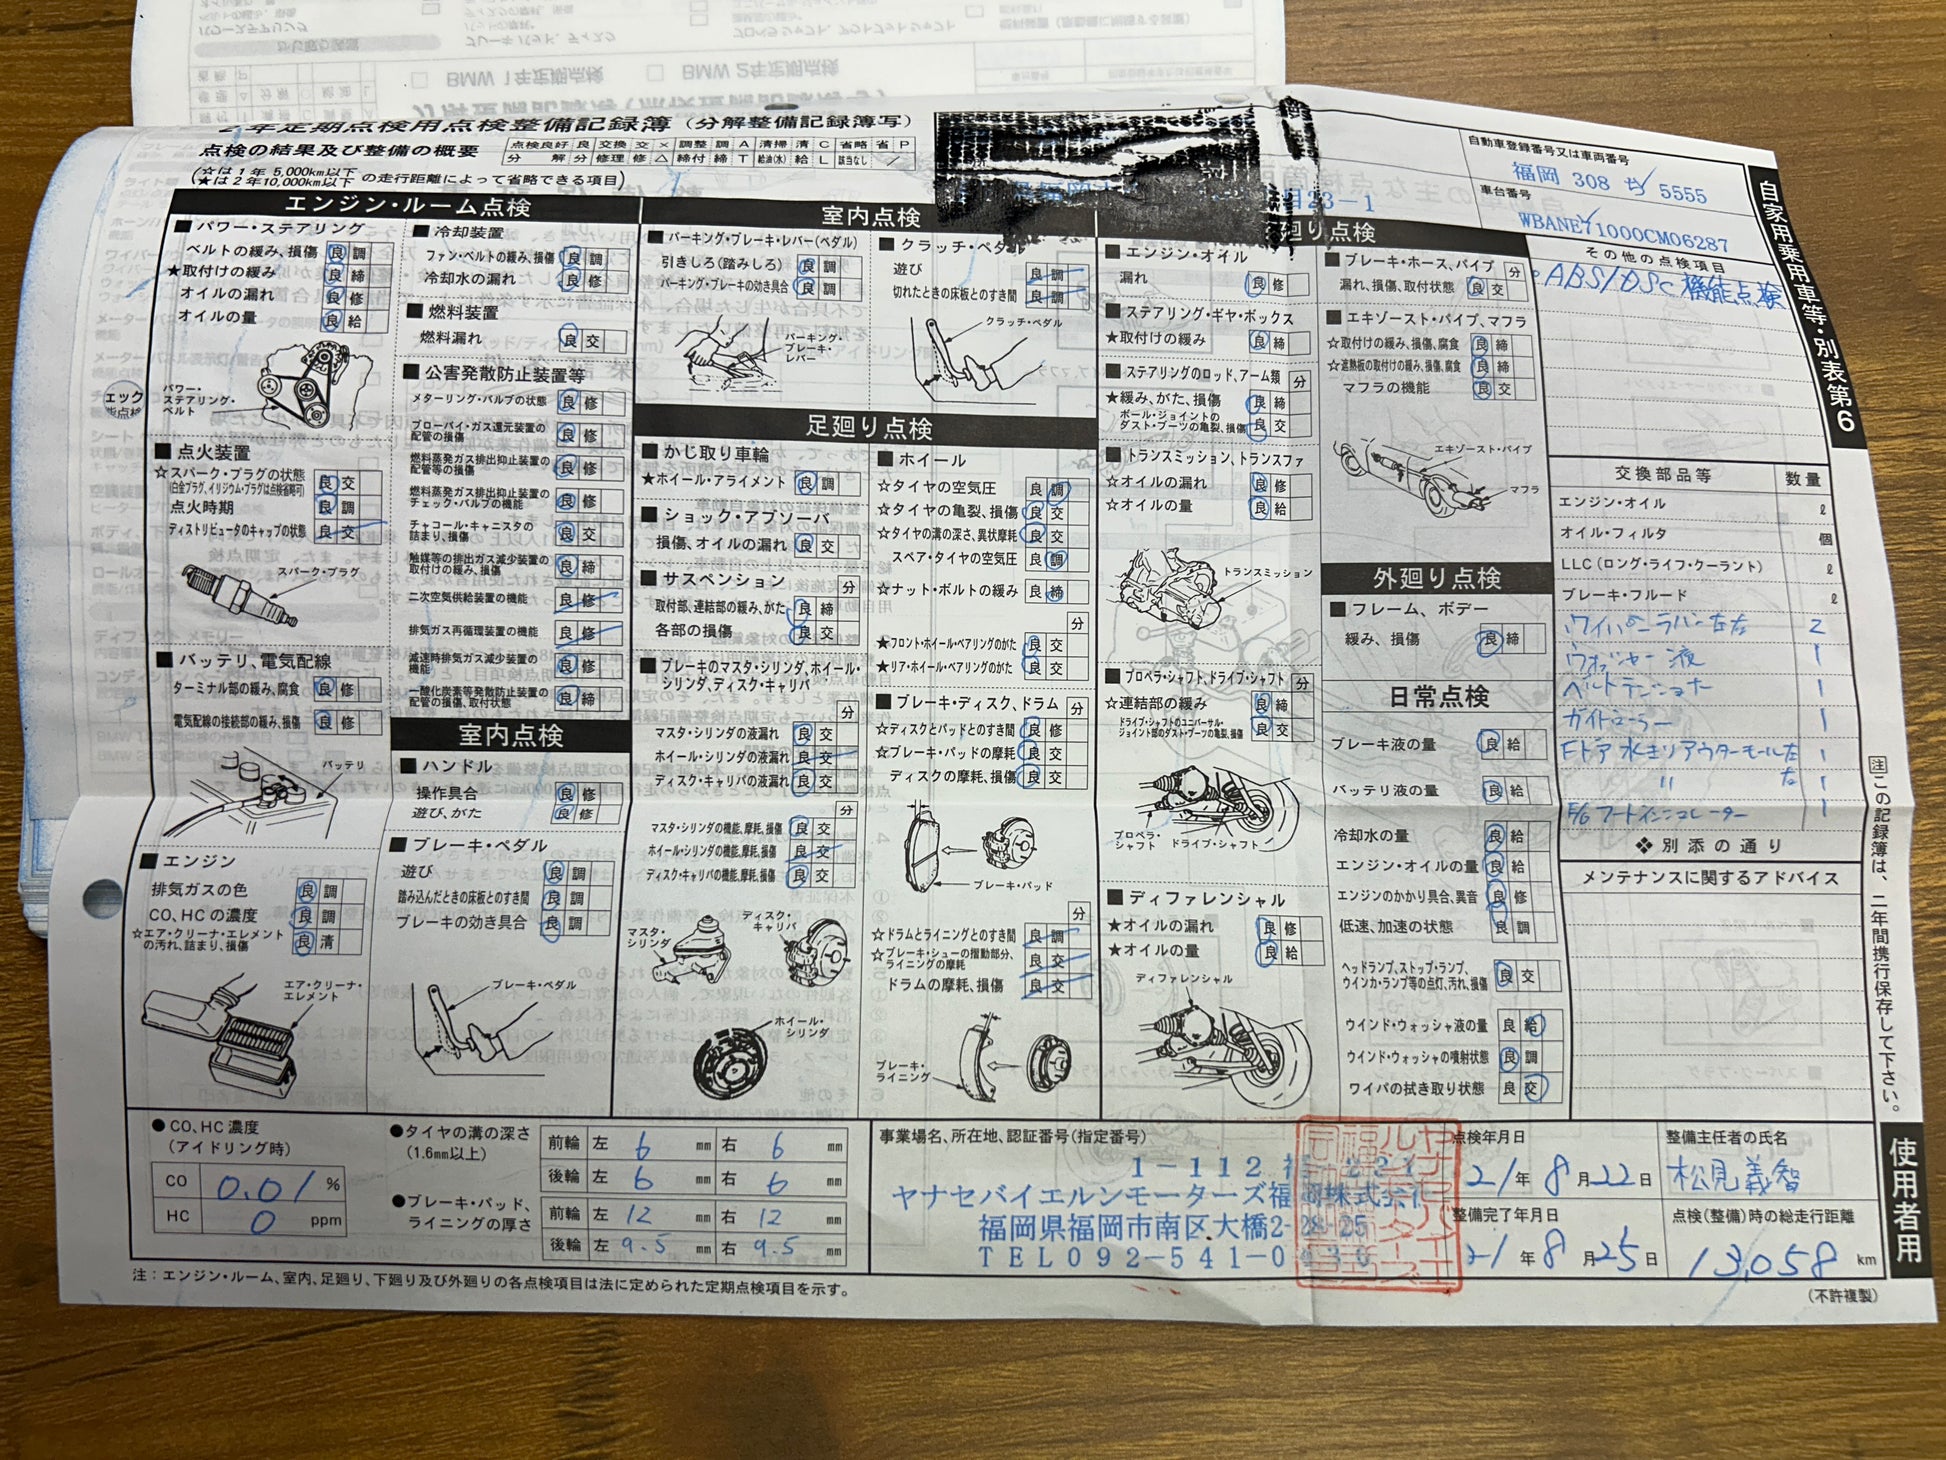 2年定期点検用点検整備記録簿（分解整備記録簿写）
点検の結果及び整備の概要
(☆は1年 5,000km以下
★は2年10,000km以下 の走行距離によって省略できる項目)
点検良好 良 交換 交 × 調整 調 A 清掃 清 C 省略 省 P
分解 分 修理 修 △ 締付 締 T 給油(水) 給 L 該当なし ／
月23-1
自動車登録番号又は車両番号
福岡 308 5555
車台番号
WBANE71000CM06287
自家用乗用車等・別表第6
エンジン・ルーム点検
■パワー・ステアリング
ベルトの緩み、損傷 良 調
★取付けの緩み 良 締
オイルの漏れ 良 修
オイルの量 良 給
パワー・ステアリング・ベルト
■点火装置
☆スパーク・プラグの状態 良 交
(白金プラグ、イリジウム・プラグは点検省略可)
点火時期 良 調
ディストリビュータのキャップの状態 良 交
スパーク・プラグ
■バッテリ、電気配線
ターミナル部の緩み、腐食 良 修
電気配線の接続部の緩み、損傷 良 修
バッテリ
■エンジン
排気ガスの色 良 調
CO、HCの濃度 良 調
☆エア・クリーナ・エレメントの汚れ、詰まり、損傷 良 清
エア・クリーナ・エレメント
■冷却装置
ファン・ベルトの緩み、損傷 良 調
冷却水の漏れ 良 修
■燃料装置
燃料漏れ 良 交
■公害発散防止装置等
メターリング・バルブの状態 良 修
ブローバイ・ガス還元装置の配管の損傷 良 修
燃料蒸発ガス排出抑止装置の配管等の損傷 良 修
燃料蒸発ガス排出抑止装置のチェック・バルブの機能 良 修
チャコール・キャニスタの詰まり、損傷 良 交
触媒等の排出ガス減少装置の取付けの緩み、損傷 良 修
二次空気供給装置の機能 良 修
排気ガス再循環装置の機能 良 修
減速時排気ガス減少装置の機能 良 修
一酸化炭素等発散防止装置の配管の損傷、取付状態 良 締
室内点検
■ハンドル
操作具合 良 修
遊び、がた 良 修
■ブレーキ・ペダル
遊び 良 調
踏み込んだときの床板とのすき間 良 調
ブレーキの効き具合 良 調
ブレーキ・ペダル
室内点検
■パーキング・ブレーキ・レバー(ペダル)
引きしろ(踏みしろ) 良 調
パーキング・ブレーキの効き具合 良 調
パーキング・ブレーキ・レバー
■クラッチ・ペダル
遊び 良 調
切れたときの床板とのすき間 良 調
クラッチ・ペダル
足廻り点検
■かじ取り車輪
★ホイール・アライメント 良 調
■ショック・アブソーバ
損傷、オイルの漏れ 良 交
■サスペンション 分
取付部、連結部の緩み、がた 良 締
各部の損傷 良 交
■ブレーキのマスタ・シリンダ、ホイール・シリンダ、ディスク・キャリパ 分
マスタ・シリンダの液漏れ 良 交
ホイール・シリンダの液漏れ 良 交
ディスク・キャリパの液漏れ 良 交
マスタ・シリンダの機能、摩耗、損傷 良 交
ホイール・シリンダの機能、摩耗、損傷 良 交
ディスク・キャリパの機能、摩耗、損傷 良 交
マスタ・シリンダ
ディスク・キャリパ
ホイール・シリンダ
■ホイール
☆タイヤの空気圧 良 調
☆タイヤの亀裂、損傷 良 交
☆タイヤの溝の深さ、異状摩耗 良 交
スペア・タイヤの空気圧 良 調
☆ナット・ボルトの緩み 良 締
分
★フロント・ホイール・ベアリングのがた 良 交
★リア・ホイール・ベアリングのがた 良 交
■ブレーキ・ディスク、ドラム 分
☆ディスクとパッドとのすき間 良 修
☆ブレーキ・パッドの摩耗 良 交
ディスクの摩耗、損傷 良 交
ブレーキ・パッド
分
☆ドラムとライニングとのすき間 良 調
☆ブレーキ・シューの摺動部分、ライニングの摩耗 良 交
ドラムの摩耗、損傷 良 交
ブレーキ・ライニング
廻り点検
■エンジン・オイル
漏れ 良 修
■ステアリング・ギヤ・ボックス
★取付けの緩み 良 締
■ステアリングのロッド、アーム類 分
★緩み、がた、損傷 良 締
ボール・ジョイントのダスト・ブーツの亀裂、損傷 良 交
■トランスミッション、トランスファ
☆オイルの漏れ 良 修
☆オイルの量 良 給
トランスミッション
■プロペラ・シャフト、ドライブ・シャフト 分
☆連結部の緩み 良 締
ドライブ・シャフトのユニバーサル・ジョイント部のダスト・ブーツの亀裂、損傷 良 交
プロペラ・シャフト
ドライブ・シャフト
■ディファレンシャル
★オイルの漏れ 良 修
★オイルの量 良 給
ディファレンシャル
■ブレーキ・ホース、パイプ 分
漏れ、損傷、取付状態 良 交
■エキゾースト・パイプ、マフラ
☆取付けの緩み、損傷、腐食 良 締
☆遮熱板の取付けの緩み、損傷、腐食 良 締
マフラの機能 良 交
エキゾースト・パイプ
マフラ
外廻り点検
■フレーム、ボデー
緩み、損傷 良 締
日常点検
ブレーキ液の量 良 給
バッテリ液の量 良 給
冷却水の量 良 給
エンジン・オイルの量 良 給
エンジンのかかり具合、異音 良 修
低速、加速の状態 良 調
ヘッドランプ、ストップ・ランプ、ウインカ・ランプ等の点灯、汚れ、損傷 良 交
ウインド・ウォッシャ液の量 良 給
ウインド・ウォッシャの噴射状態 良 調
ワイパの拭き取り状態 良 交
その他の点検項目
ABS/DSC 機能点検
交換部品等 数量
エンジン・オイル ℓ
オイル・フィルタ 個
LLC(ロング・ライフ・クーラント) ℓ
ブレーキ・フルード ℓ
ワイパーラバー左右 2
ウオッシャー液 1
ベルトテンショナー 1
ガイドローラー 1
Fドア 水キリアウターモール左 1
〃 右 1
1
❖別添の通り
メンテナンスに関するアドバイス
注 この記録簿は、二年間携行保存して下さい。
使用者用
●CO、HC濃度
(アイドリング時)
CO 0.01 %
HC 0 ppm
●タイヤの溝の深さ
(1.6mm以上)
前輪 左 6 mm 右 6 mm
後輪 左 6 mm 右 6 mm
●ブレーキ・パッド、ライニングの厚さ
前輪 左 12 mm 右 12 mm
後輪 左 9.5 mm 右 9.5 mm
事業場名、所在地、認証番号(指定番号)
1-112
ヤナセバイエルンモーターズ福岡株式会社
福岡県福岡市南区大橋2-28-25
TEL092-541-0430
点検年月日
21年 8月22日
整備完了年月日
21年 8月25日
整備主任者の氏名
松見義智
点検(整備)時の総走行距離
13,058 km
注：エンジン・ルーム、室内、足廻り、下廻り及び外廻りの各点検項目は法に定められた定期点検項目を示す。
(不許複製)